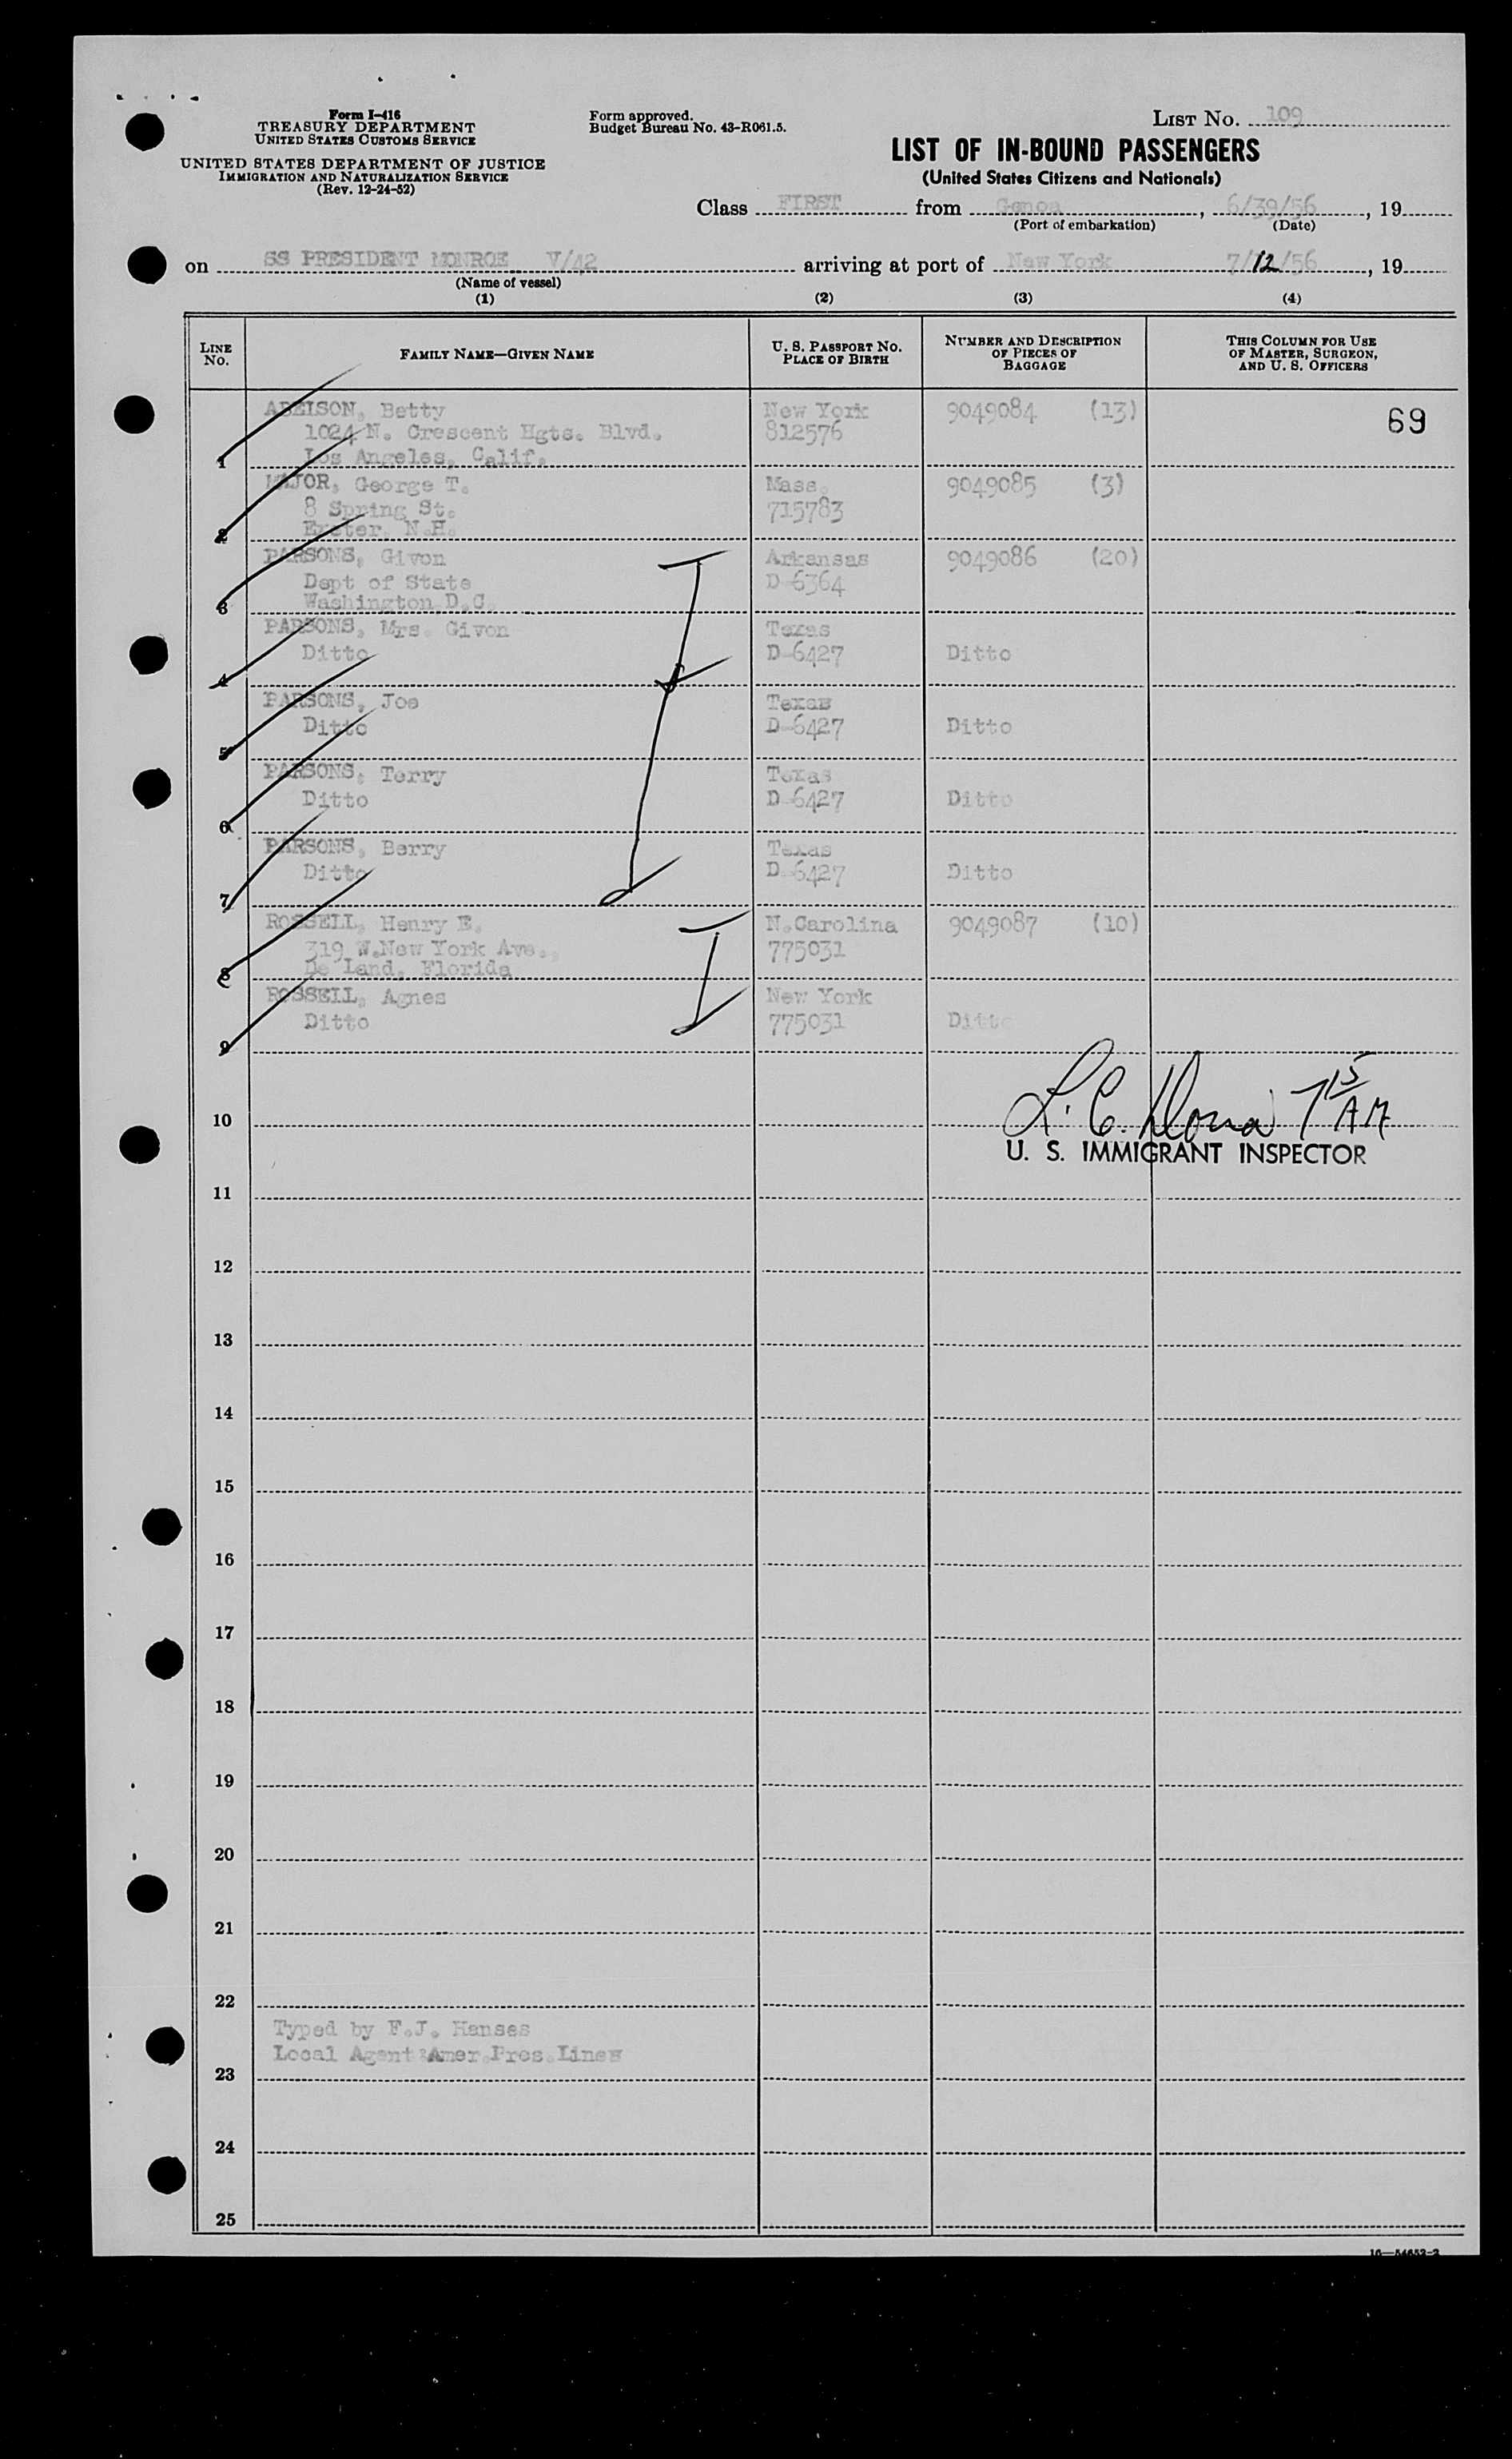 Form I-416
TREASURY DEPARTMENT
UNITED STATES CUSTOMS SERVICE
UNITED STATES DEPARTMENT OF JUSTICE
IMMIGRATION AND NATURALIZATION SERVICE
(Rev. 12-24-52)
Form approved.
Budget Bureau No. 43-R061.5.
LIST No. 109
LIST OF IN-BOUND PASSENGERS
(United States Citizens and Nationals)
Class FIRST from Genoa, 6/39/56, 19
(Port of embarkation) (Date)
on SS PRESIDENT MONROE V/42 arriving at port of New York 7/12/56, 19
(Name of vessel)
(1) (2) (3) (4)
LINE No. FAMILY NAME—GIVEN NAME U. S. PASSPORT NO. PLACE OF BIRTH NUMBER AND DESCRIPTION OF PIECES OF BAGGAGE THIS COLUMN FOR USE OF MASTER, SURGEON, AND U. S. OFFICERS
ABELSON, Betty New York 9049084 (13) 69
1024 N. Crescent Hgts. Blvd. 812576
1 Los Angeles, Calif.
MAJOR, George T. Mass. 9049085 (3)
8 Spring St. 715783
2 Exeter, N.H.
PARSONS, Givon Arkansas 9049086 (20)
Dept of State D-6364
3 Washington D.C.
PARSONS, Mrs. Givon Texas
Ditto D-6427 Ditto
4
PARSONS, Joe Texas
Ditto D-6427 Ditto
5
PARSONS, Terry Texas
Ditto D-6427 Ditto
6
PARSONS, Berry Texas
Ditto D-6427 Ditto
7
ROSSELL, Henry E. N.Carolina 9049087 (10)
319 W.New York Ave. 775031
8 De Land, Florida
ROSSELL, Agnes New York
Ditto 775031 Ditto
9
L. C. 7 15/AM
10
U. S. IMMIGRANT INSPECTOR
11
12
13
14
15
16
17
18
19
20
21
22
Typed by F.J. Hanses
Local Agent Amer.Pres.Lines
23
24
25
16—54652-2